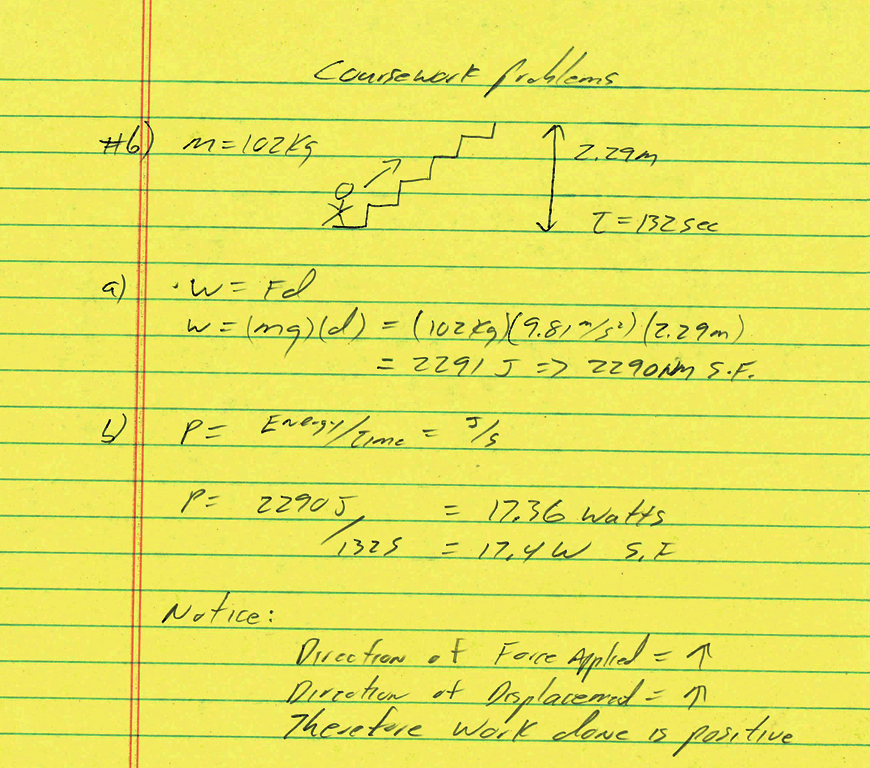 Coursework problems
#6) m=102Kg
2.29m
T=132sec
a) · W = Fd
W = (mg)(d) = (102Kg)(9.81 m/s²)(2.29m)
= 2291 J => 2290 NM S.F.
b) P = Energy/Time = J/s
P = 2290J = 17.36 Watts
/132S = 17.4W S.F
Notice:
Direction of Force Applied = ↑
Direction of Displacement = ↑
Therefore work done is positive